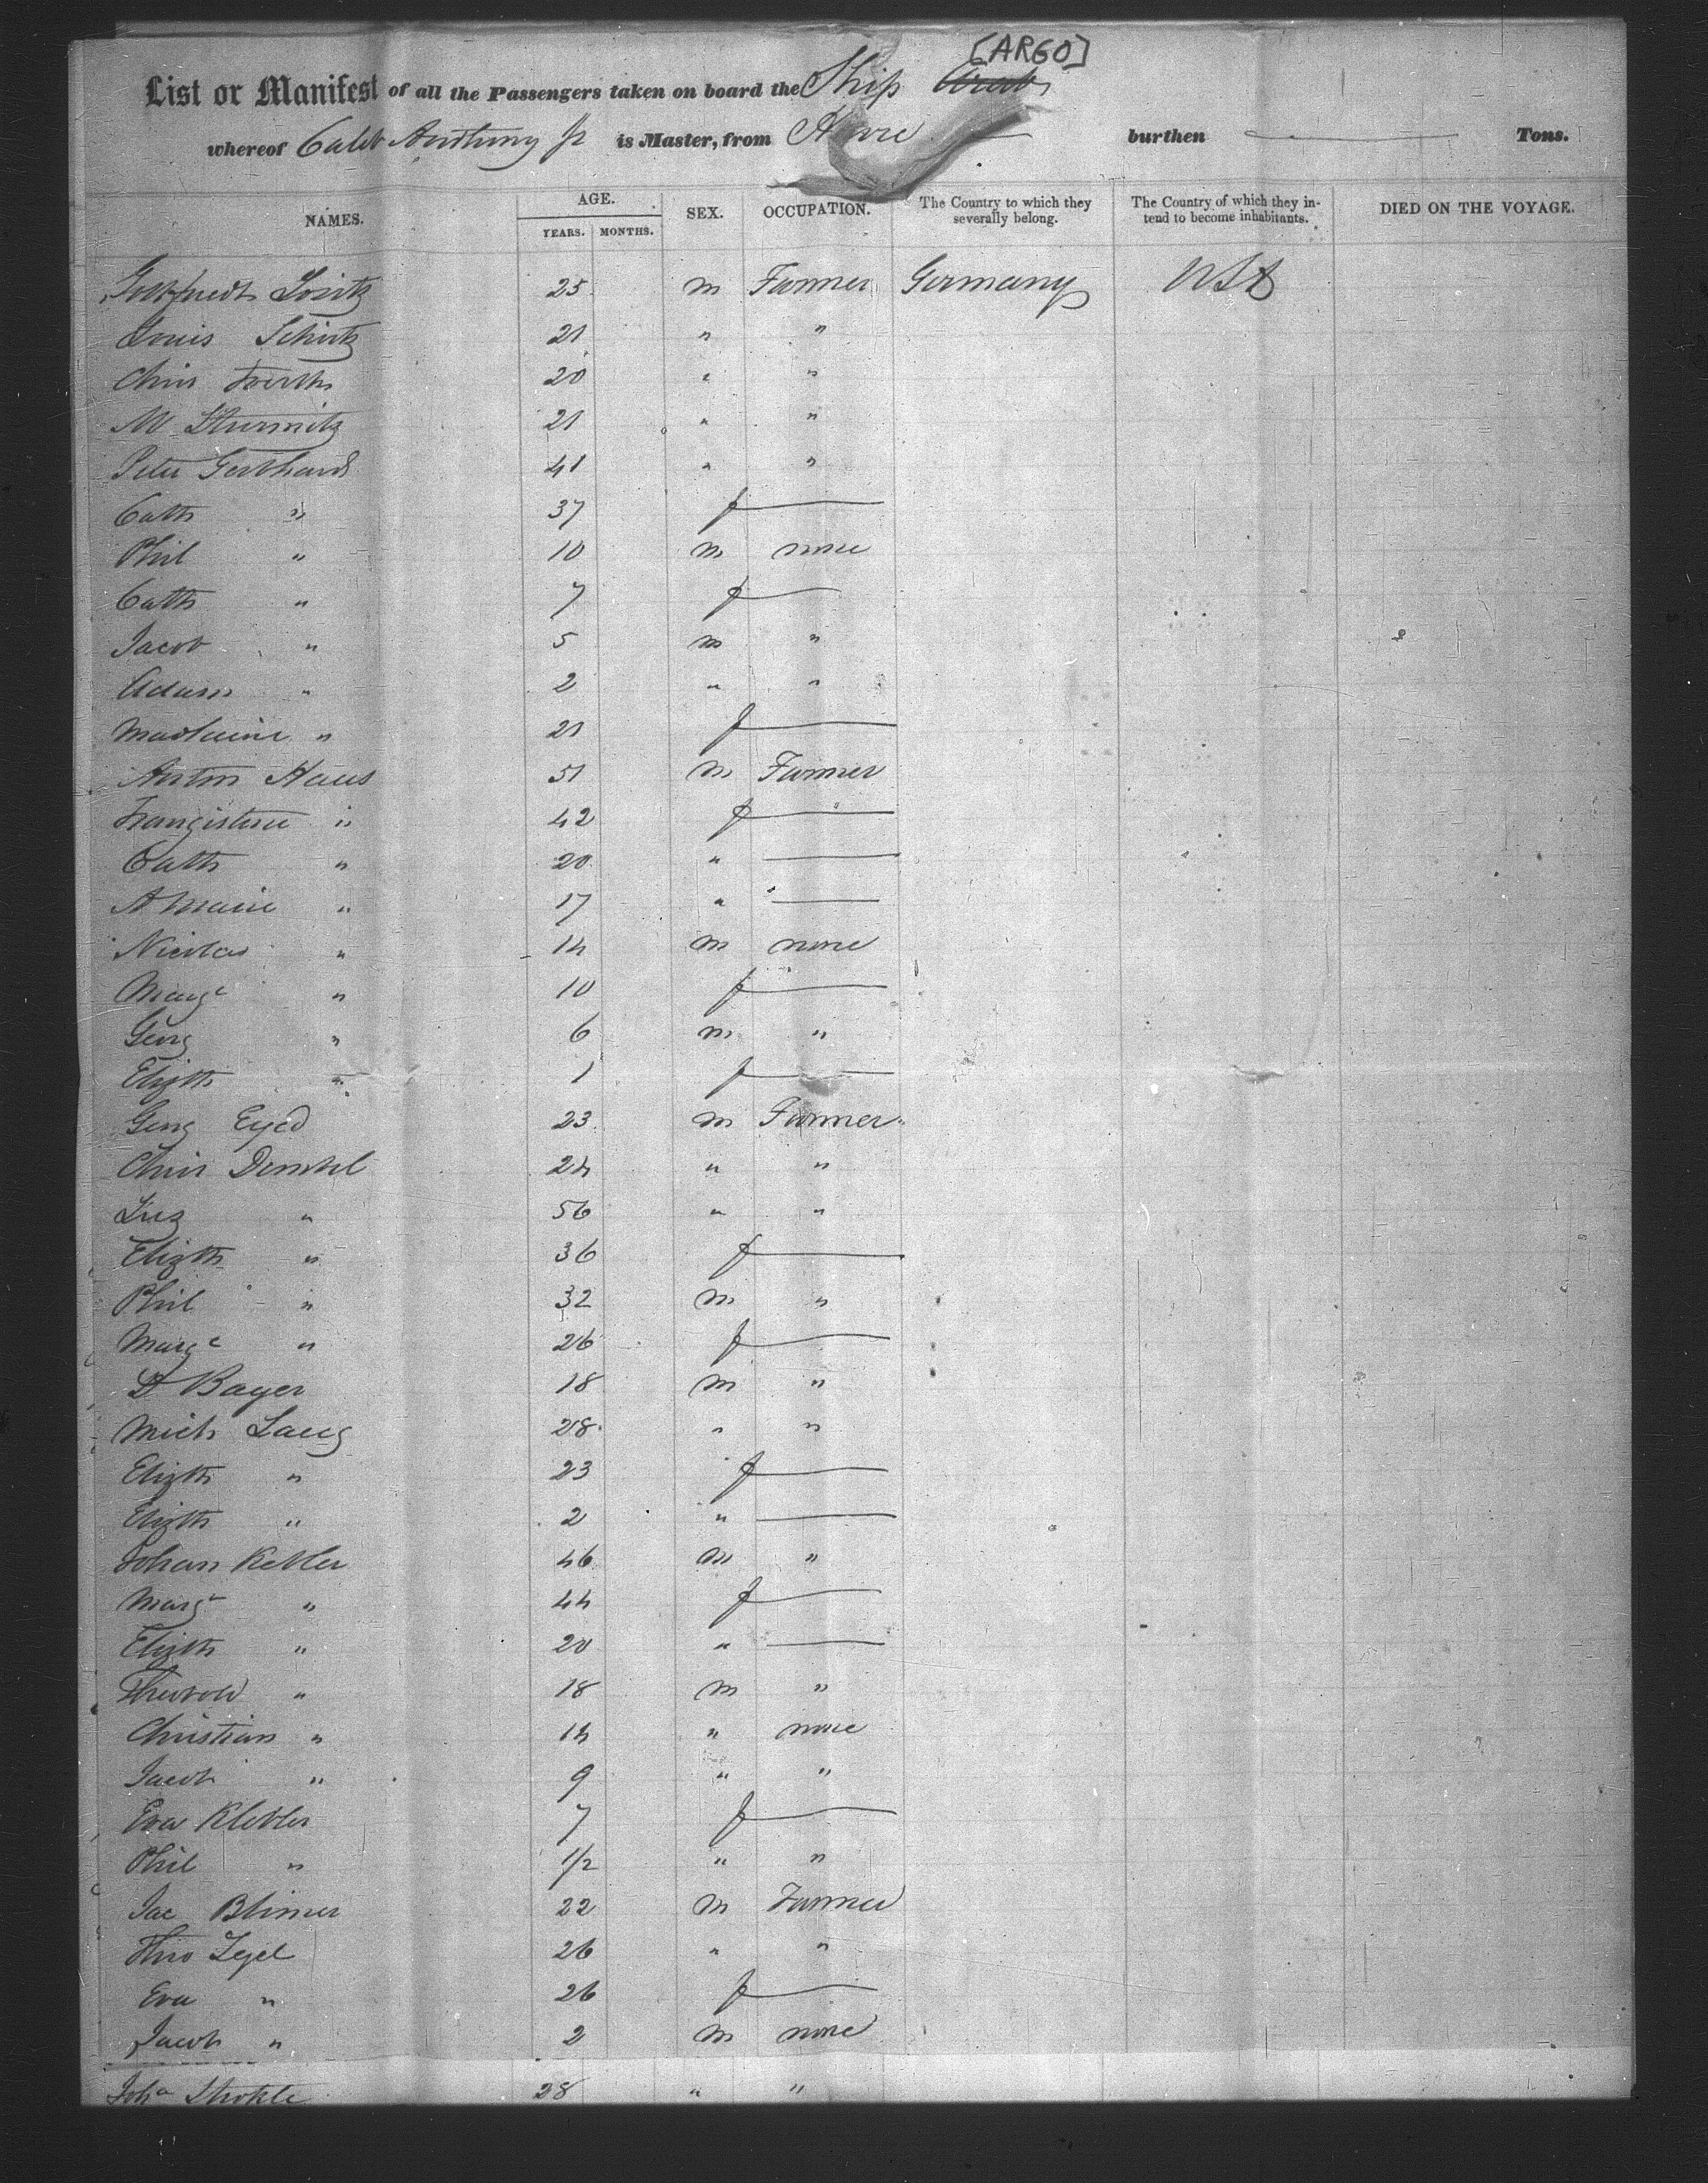 [ARGO]
List or Manifest of all the Passengers taken on board the Ship
whereof Caleb Anthony Jr is Master, from Havre burthen Tons.
NAMES. AGE. YEARS. MONTHS. SEX. OCCUPATION. The Country to which they severally belong. The Country of which they intend to become inhabitants. DIED ON THE VOYAGE.
25 m Farmer Germany USA
Louis 21 " "
Chris 20 " "
M 21 " "
Peter Gerbhard 41 " "
Cath " 37 f
Phil " 10 m none
Cath " 7 f
Jacob " 5 m "
Adam " 2 " "
" 21 f
Anton Haus 51 m Farmer
" 42 f "
Cath " 20 "
A Marie " 17 "
Nicolas " 14 m none
Marge " 10 f
Georg " 6 m "
Elizth " 1 f
Georg 23 m Farmer
Chris 24 " "
" 56 " "
Elizth " 36 f
Phil " 32 m "
Marge " 26 f
Bayer 18 m "
Mich Laug 28 " "
Elizth " 23 f
Elizth " 2 "
Johan Kebler 46 m "
Marg " 44 f
Elizth " 20 "
" 18 m "
Christian " 14 " none
Jacob " 9 " "
Eva Klebler 7 f
Phil " 1/2 " "
Jac Blimer 22 m Farmer
Theo Zegel 26 " "
Eva " 26 f
Jacob " 2 m none
Joha 28 " "